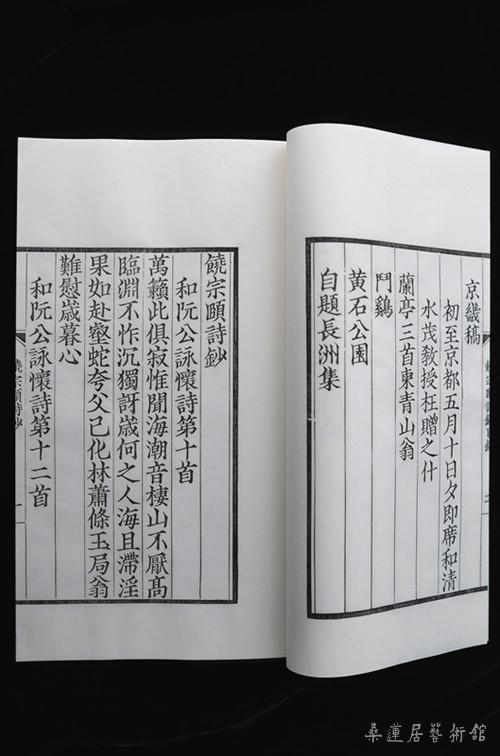 京畿稿
初至京都五月十日夕即席和清
水茂教授枉贈之什
蘭亭三首柬青山翁
鬥鷄
黄石公園
自題長洲集
饒宗頤詩鈔
和阮公詠懷詩第十首
萬籟此俱寂惟聞海潮音棲山不厭髙
臨淵不怍沉獨訝歲何之人海且滯淫
果如赴壑蛇夸父已化林蕭條玉局翁
難慰歲暮心
和阮公詠懷詩第十二首
饒宗頤詩鈔
一
桑蓮居藝術館